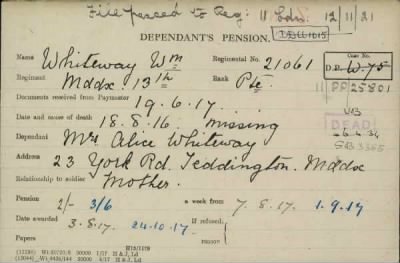 File passed to Reg: 11 Ldn. 12/11/21
DEPENDANT'S PENSION.
Name Whiteway Wm Regimental No. 21061
Case No.
D.D. W.75
Regiment Mddx. 13th Rank Pte
11 DP 25801
Documents received from Paymaster 19.6.17...
Date and cause of death 18.8.16. missing
DEAD
Dependant Mrs Alice Whiteway
Address 23 York Rd. Teddington. Mddx
Relationship to soldier Mother.
Pension 2/- 3/6 a week from 7.8.17. 1.9.17
Date awarded 3.8.17. 24.10.17. If refused,
Papers reason